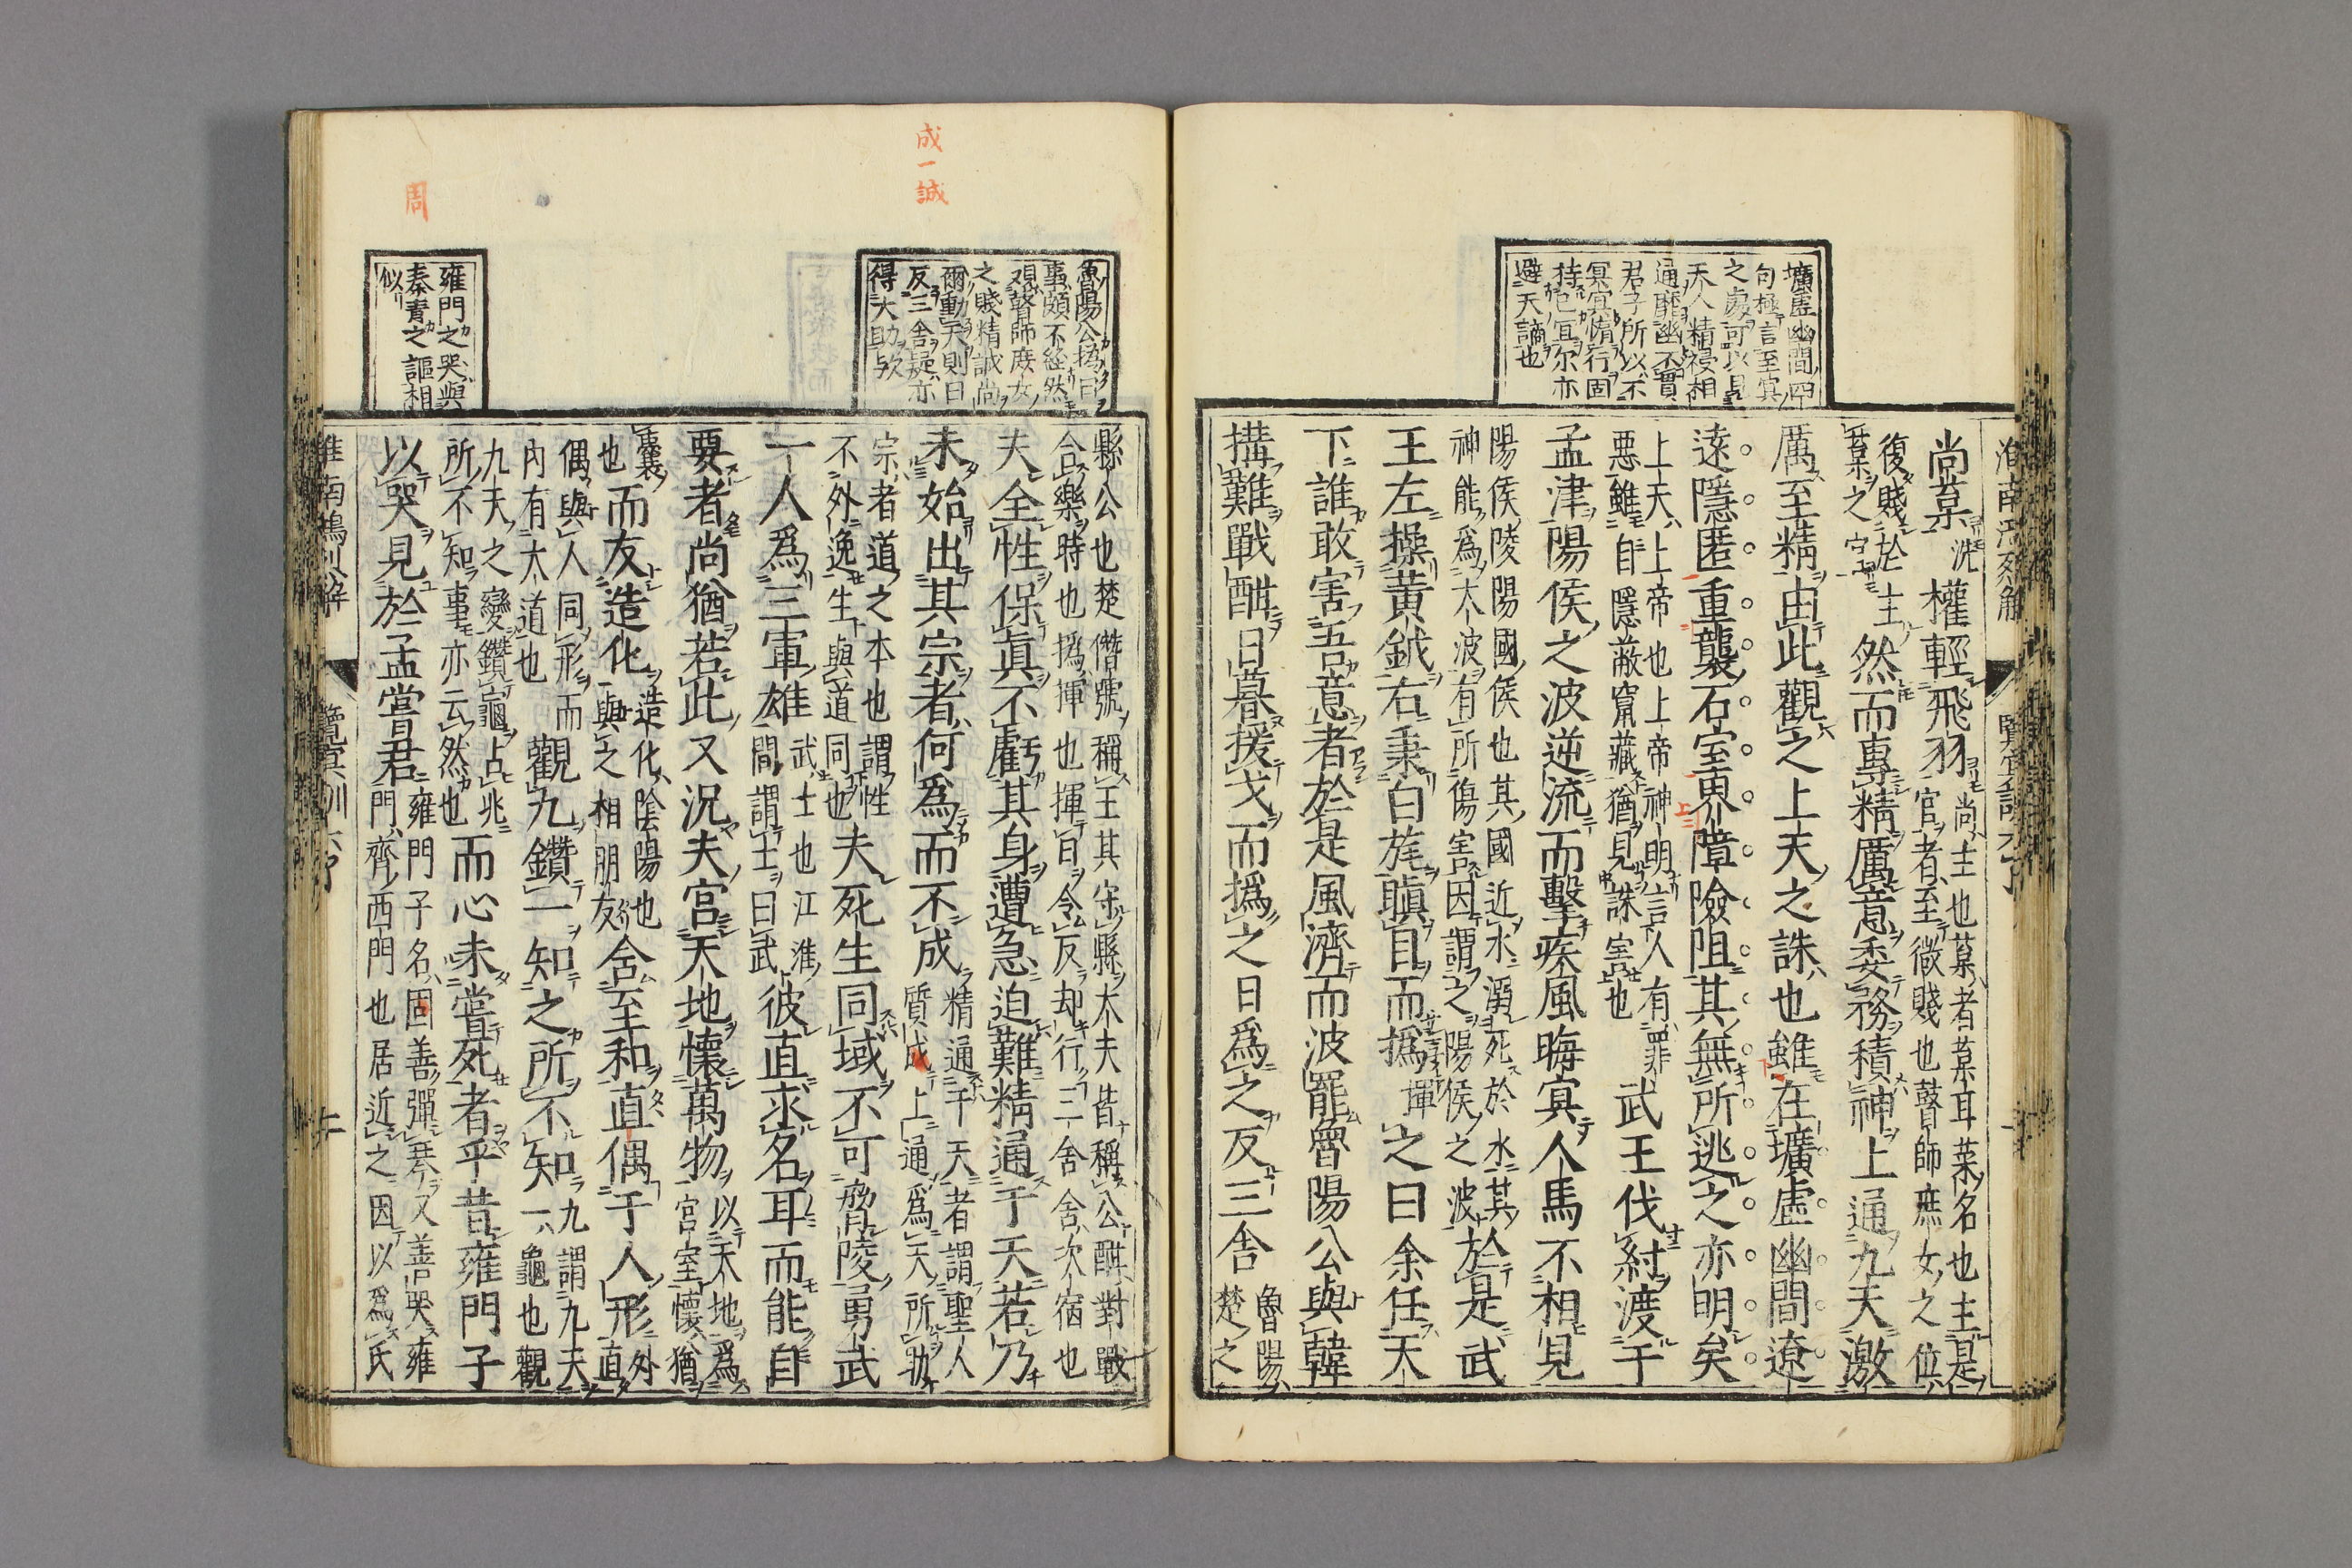 壙虛幽間四
句極言至冥
之處可以見
天人精祲相
通靡幽不貫
君子所以不
冥冥惰行固
持已冝尔亦
避天謫也
尚葈
權輕飛羽
尚主也葈者葈耳菜名也主是
官者至微賤也瞽師庶女之位
復賤於主
葈之官
然而專精厲意委務積神上通九天激
厲至精由此觀之上天之誅也雖在壙虛幽間遼
遠隱匿重襲石室界障險阻其無所逃之亦明矣
上天上帝也上帝神明言人有罪
惡雖自隱蔽竄藏猶見誅害也
武王伐紂渡于
孟津陽侯之波逆流而擊疾風晦冥人馬不相見
陽侯陵陽國侯也其國近水溺死於水其
神能爲大波有所傷害因謂之陽侯之波
於是武
王左操黃鉞右秉白旄瞋目而撝
揮
之曰余任天
下誰敢害吾意者於是風濟而波罷魯陽公與韓
搆難戰酣日暮援戈而撝之日爲之反三舍
魯陽
楚之
魯陽公撝日
事頗不經然
覌瞽師庶女
之賤精誠尚
爾動天則日
反三舍疑亦
得大助欤
成一誠
縣公也楚僭號稱王其守縣大夫皆稱公酣對戰
合樂時也撝揮也揮日令反却行三舍舍次宿也
夫全性保眞不虧其身遭急迫難精通于天若乃
未始出其宗者何爲而不成
精通于天者謂聖人
質成上通爲天所助
宗者道之本也謂性
不外逸生與道同也
夫死生同域不可脅陵勇武
一人爲三軍雄
武士也江淮
間謂士曰武
彼直求名耳而能自
要者尚猶若此又况夫宮天地懷萬物
以天地爲
宮室懷猶
囊
也
而友造化
造化陰陽也
與之相朋友
含至和直偶于人形
外直
偶與人同形而
內有大道也
觀九鑽一知之所不知
九謂九天
一龜也觀
九天之變鑽龜占兆
所不知事亦云然也
而心未嘗死者乎昔雍門子
以哭見於孟嘗君
雍門子名固善彈琴又善哭雍
門齊西門也居近之因以爲氏
雍門之哭與
秦青之謳相
似
周
淮南鴻烈解
覽冥訓六